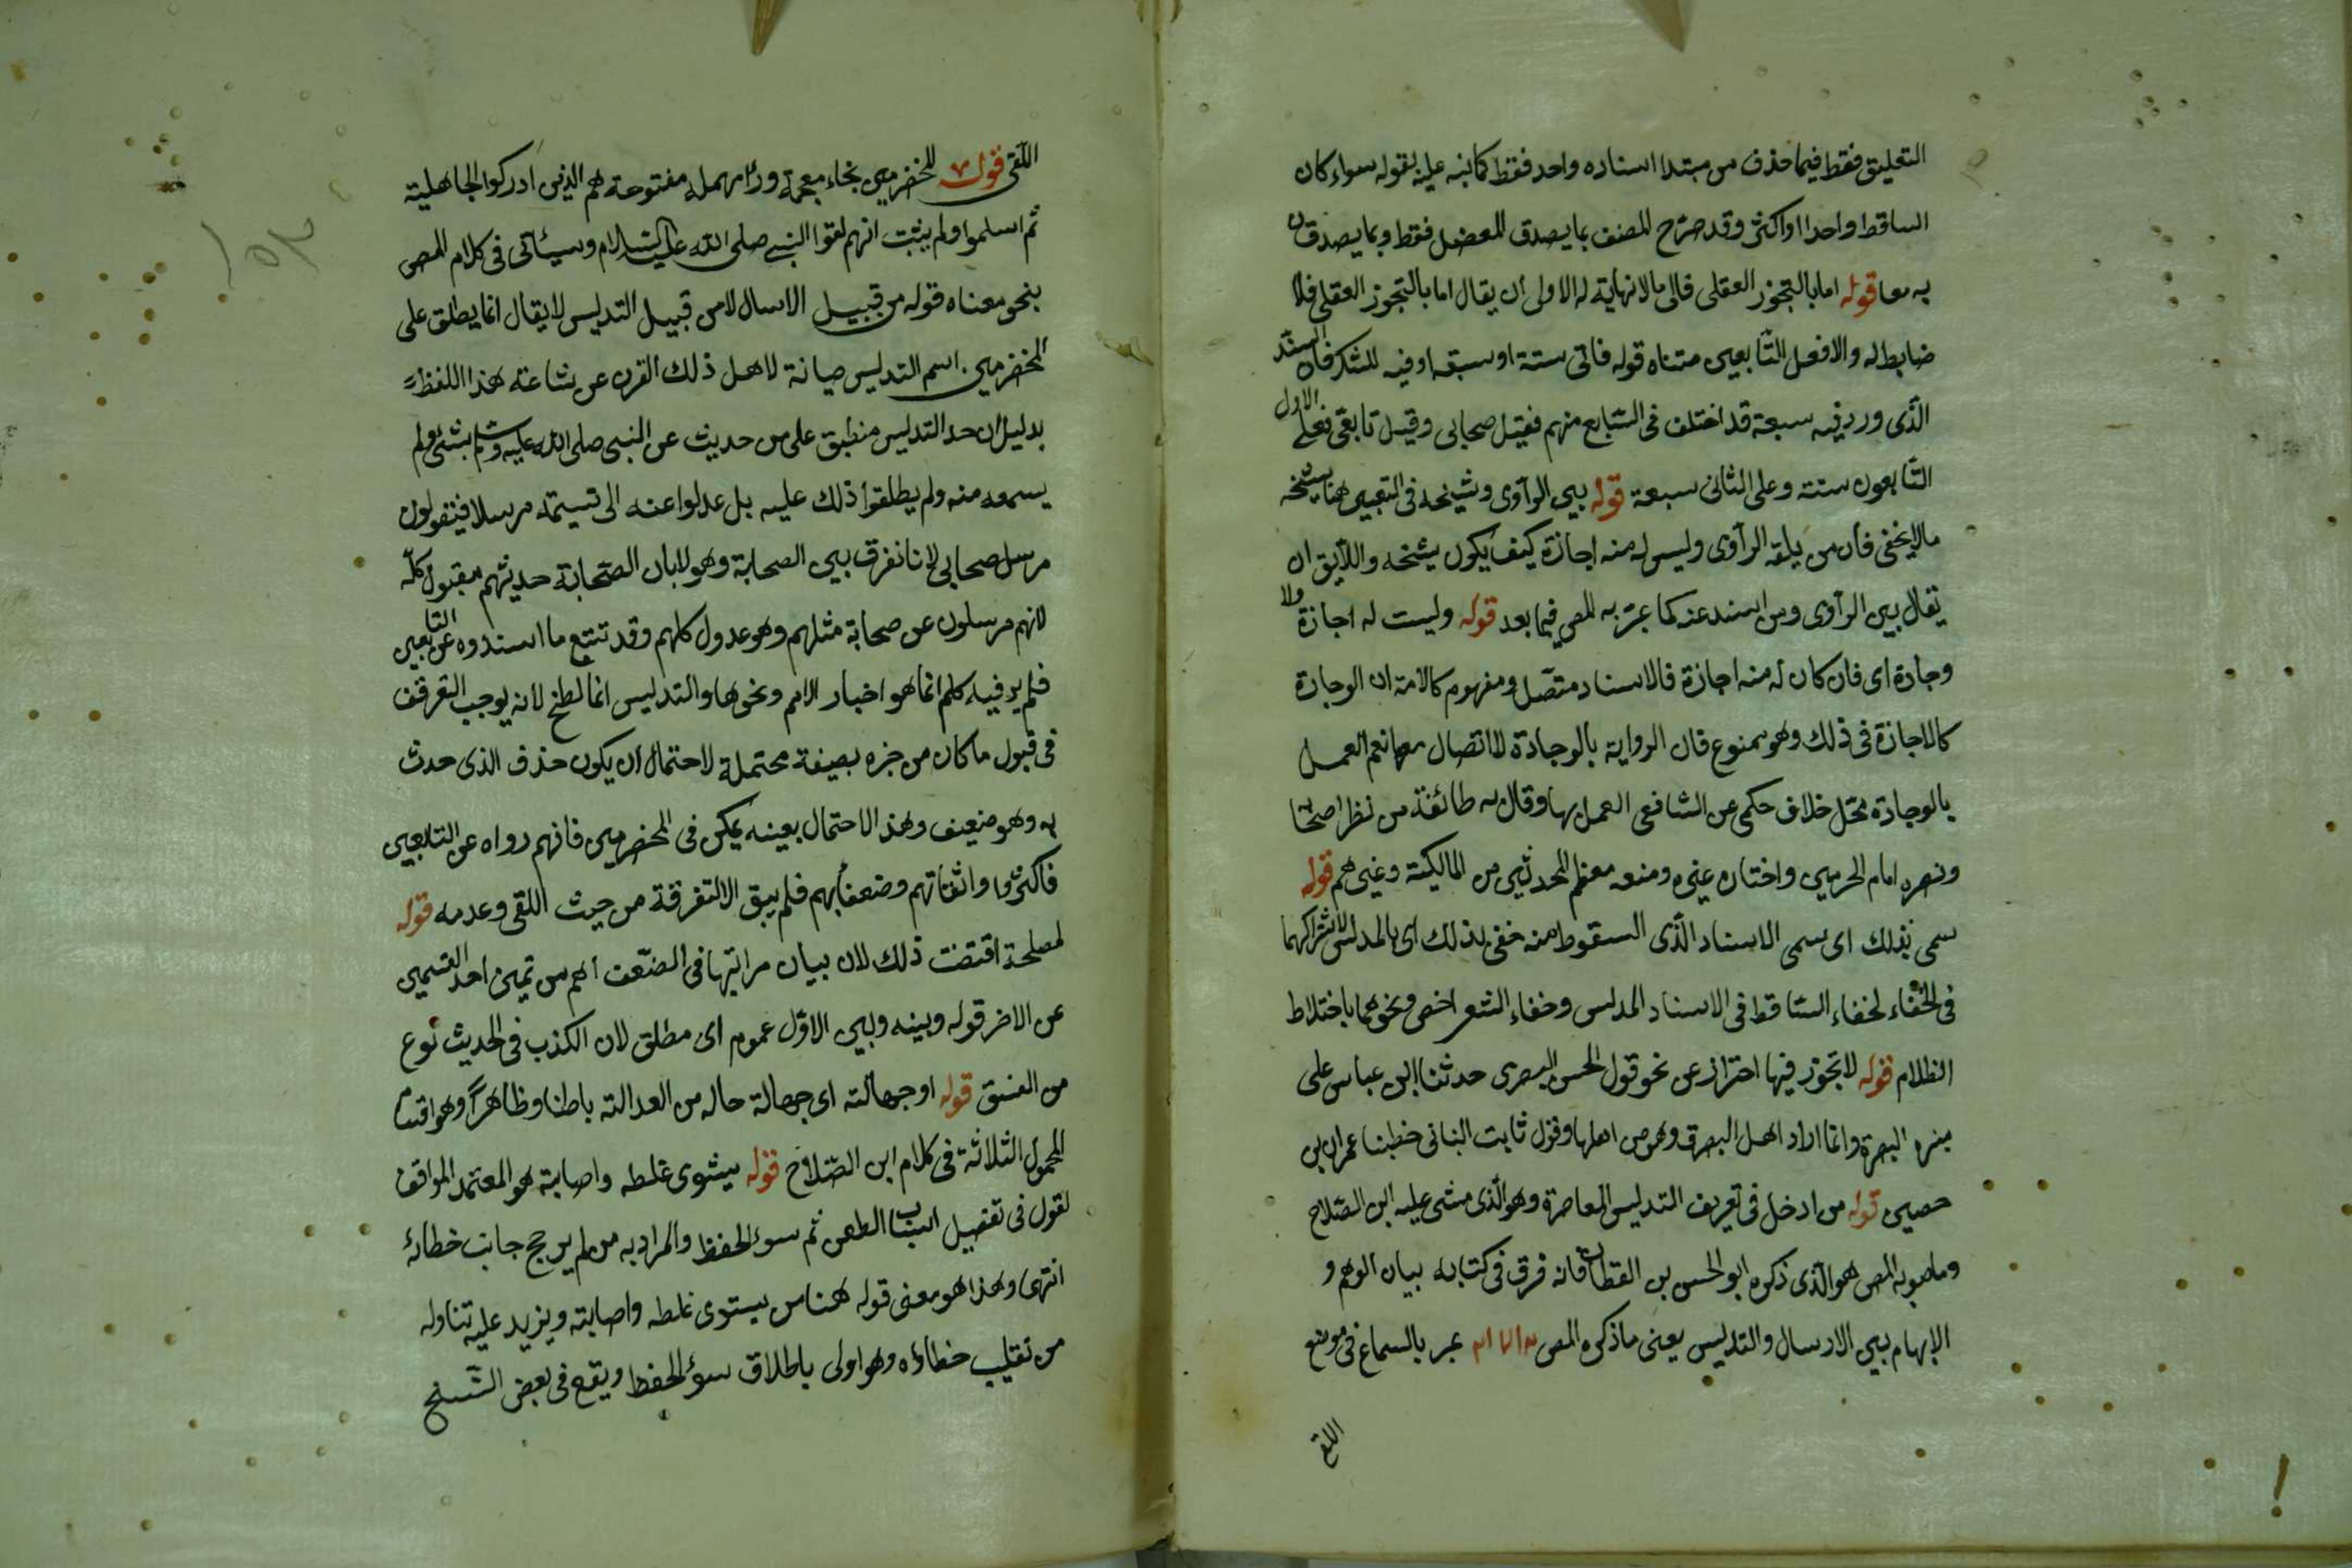 التعليق فقط فيما حذف من مبتدا اسناده واحد فقط كما نبه عليه بقوله سواء كان
الساقط واحدا او اكثر وقد صرح المصنف بما يصدق المعضل فقط وبما يصدقان
به معا قوله اما بالتجوز العقلى فالى مالانهاية له الاولى ان يقال اما بالتجوز العقلى فلا
ضابط له والا فعل التابعين متناه قوله فالى ستة او سبعة او فيه للشك فان السند
الذى ورد فيه سبعة قد اختلف فى السابع منهم فقيل صحابى وقيل تابعى فعلى الاول
التابعون ستة وعلى الثانى سبعة قوله بين الراوى وشيخه فى التعبير هنا بشيخه
مالا يخفى فان من يلقه الراوى وليس له منه اجازة كيف يكون شيخه واللايق ان
يقال بين الراوى ومن اسند عنه كما عبر به المص فيما بعد قوله وليست له اجازة ولا
وجادة اى فان كان له منه اجازة فالاسناد متصل ومفهوم كلامه ان الوجادة
كالاجازة فى ذلك وهو ممنوع فان الرواية بالوجادة لا اتصال معها نعم العمل
بالوجادة محل خلاف حكى عن الشافعى العمل بها وقال به طائفة من نظر اصحابه
ونصره امام الحرمين واختاره غيره ومنعه معظم المحدثين من المالكية وغيرهم قوله
سمى بذلك اى سمى الاسناد الذى السقوط منه خفى بذلك اى بالمدلس لاشتراكهما
فى الخفاء لخفاء الساقط فى الاسناد المدلس وخفاء الشعر اخص ونحوهما باختلاط
الظلام قوله لا تجوز فيها احتراز عن نحو قول الحسن البصرى حدثنا ابن عباس على
منبره البصرة وانما اراد اهل البصرة وهو من اهلها وقول ثابت البنانى خطبنا عمران بن
حصين قوله من ادخل فى تعريف التدليس المعاصرة وهو الذى مشى عليه ابن الصلاح
وماصوبه المص هو الذى ذكره ابو الحسن بن القطان فانه فرق فى كتابه بيان الوهم و
الابهام بين الارسال والتدليس يعنى ماذكره المص عبر بالسماع فى موضع
اللقى
اللقى قوله المخضرمين بخاء معجمة وراء مهملة مفتوحة هم الذين ادركوا الجاهلية
ثم اسلموا ولم يثبت انهم لقوا النبى صلى الله عليه السلام وسيأتى فى كلام المص
بنحو معناه قوله من قبيل الارسال لا من قبيل التدليس لايقال انما يطلق على
المخضرمين اسم التدليس صيانة لاهل ذلك القرن عن شناعته هذا اللفظ
بدليل ان حد التدليس منطبق على من حديث عن النبى صلى الله عليه وسلم بشئ ولم
يسمعه منه ولم يطلقوا ذلك عليه بل عدلوا عنه الى تسميته مرسلا فيقولون
مرسل صحابى لانا نفرق بين الصحابة وهولا بان الصحابة حديثهم مقبول كله
لانهم مرسلون عن صحابة مثلهم وهو عدول كلهم وقد تتبع ما اسندوه عن التابعين
فلم يرد فيه كلم انما هو اخبار الامم ونحوها والتدليس انما لطخ لانه يوجب التوقف
فى قبول ماكان من خبره بصيغة محتملة لاحتمال ان يكون حذف الذى حدث
به وهو ضعيف وهذا الاحتمال بعينه يمكن فى المخضرمين فانهم رواه عن التابعين
فاكثروا واثقاتهم وضعفائهم فلم يبق الا التفرقة من حيث اللقى وعدمه قوله
لمصلحة اقتضت ذلك لان بيان مراتبها فى الضعف اهم من تميز احد القسمين
عن الاخر قوله وبينه وبين الاول عموم اى مطلق لان الكذب فى الحديث نوع
من الفسق قوله او جهالته اى جهالة حاله من العدالة باطنا وظاهرا وهو اقسام
المجهول الثلاثة فى كلام ابن الصلاح قوله يستوى غلطه واصابته هو المعتمد الموافق
لقول فى تفصيل اسباب الطعن ثم سوء الحفظ والمراد به من لم يرجح جانب خطائه
انتهى وهذا هو معنى قوله هنا من يستوى غلطه واصابته ويزيد عليه تناوله
من تغليب خطاؤه وهو اولى باطلاق سوء الحفظ ويقع فى بعض النسخ